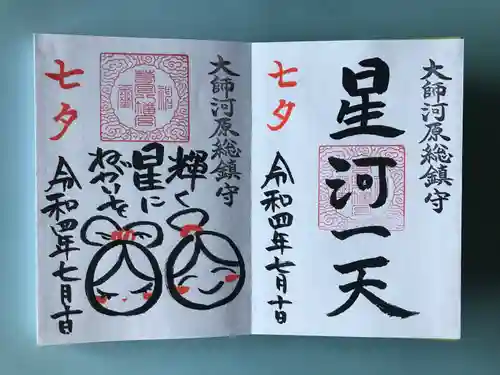 大師河原総鎮守
星河一天
七夕
令和四年七月十日
大師河原総鎮守
輝く
星に
ねがいを
七夕
令和四年七月十日